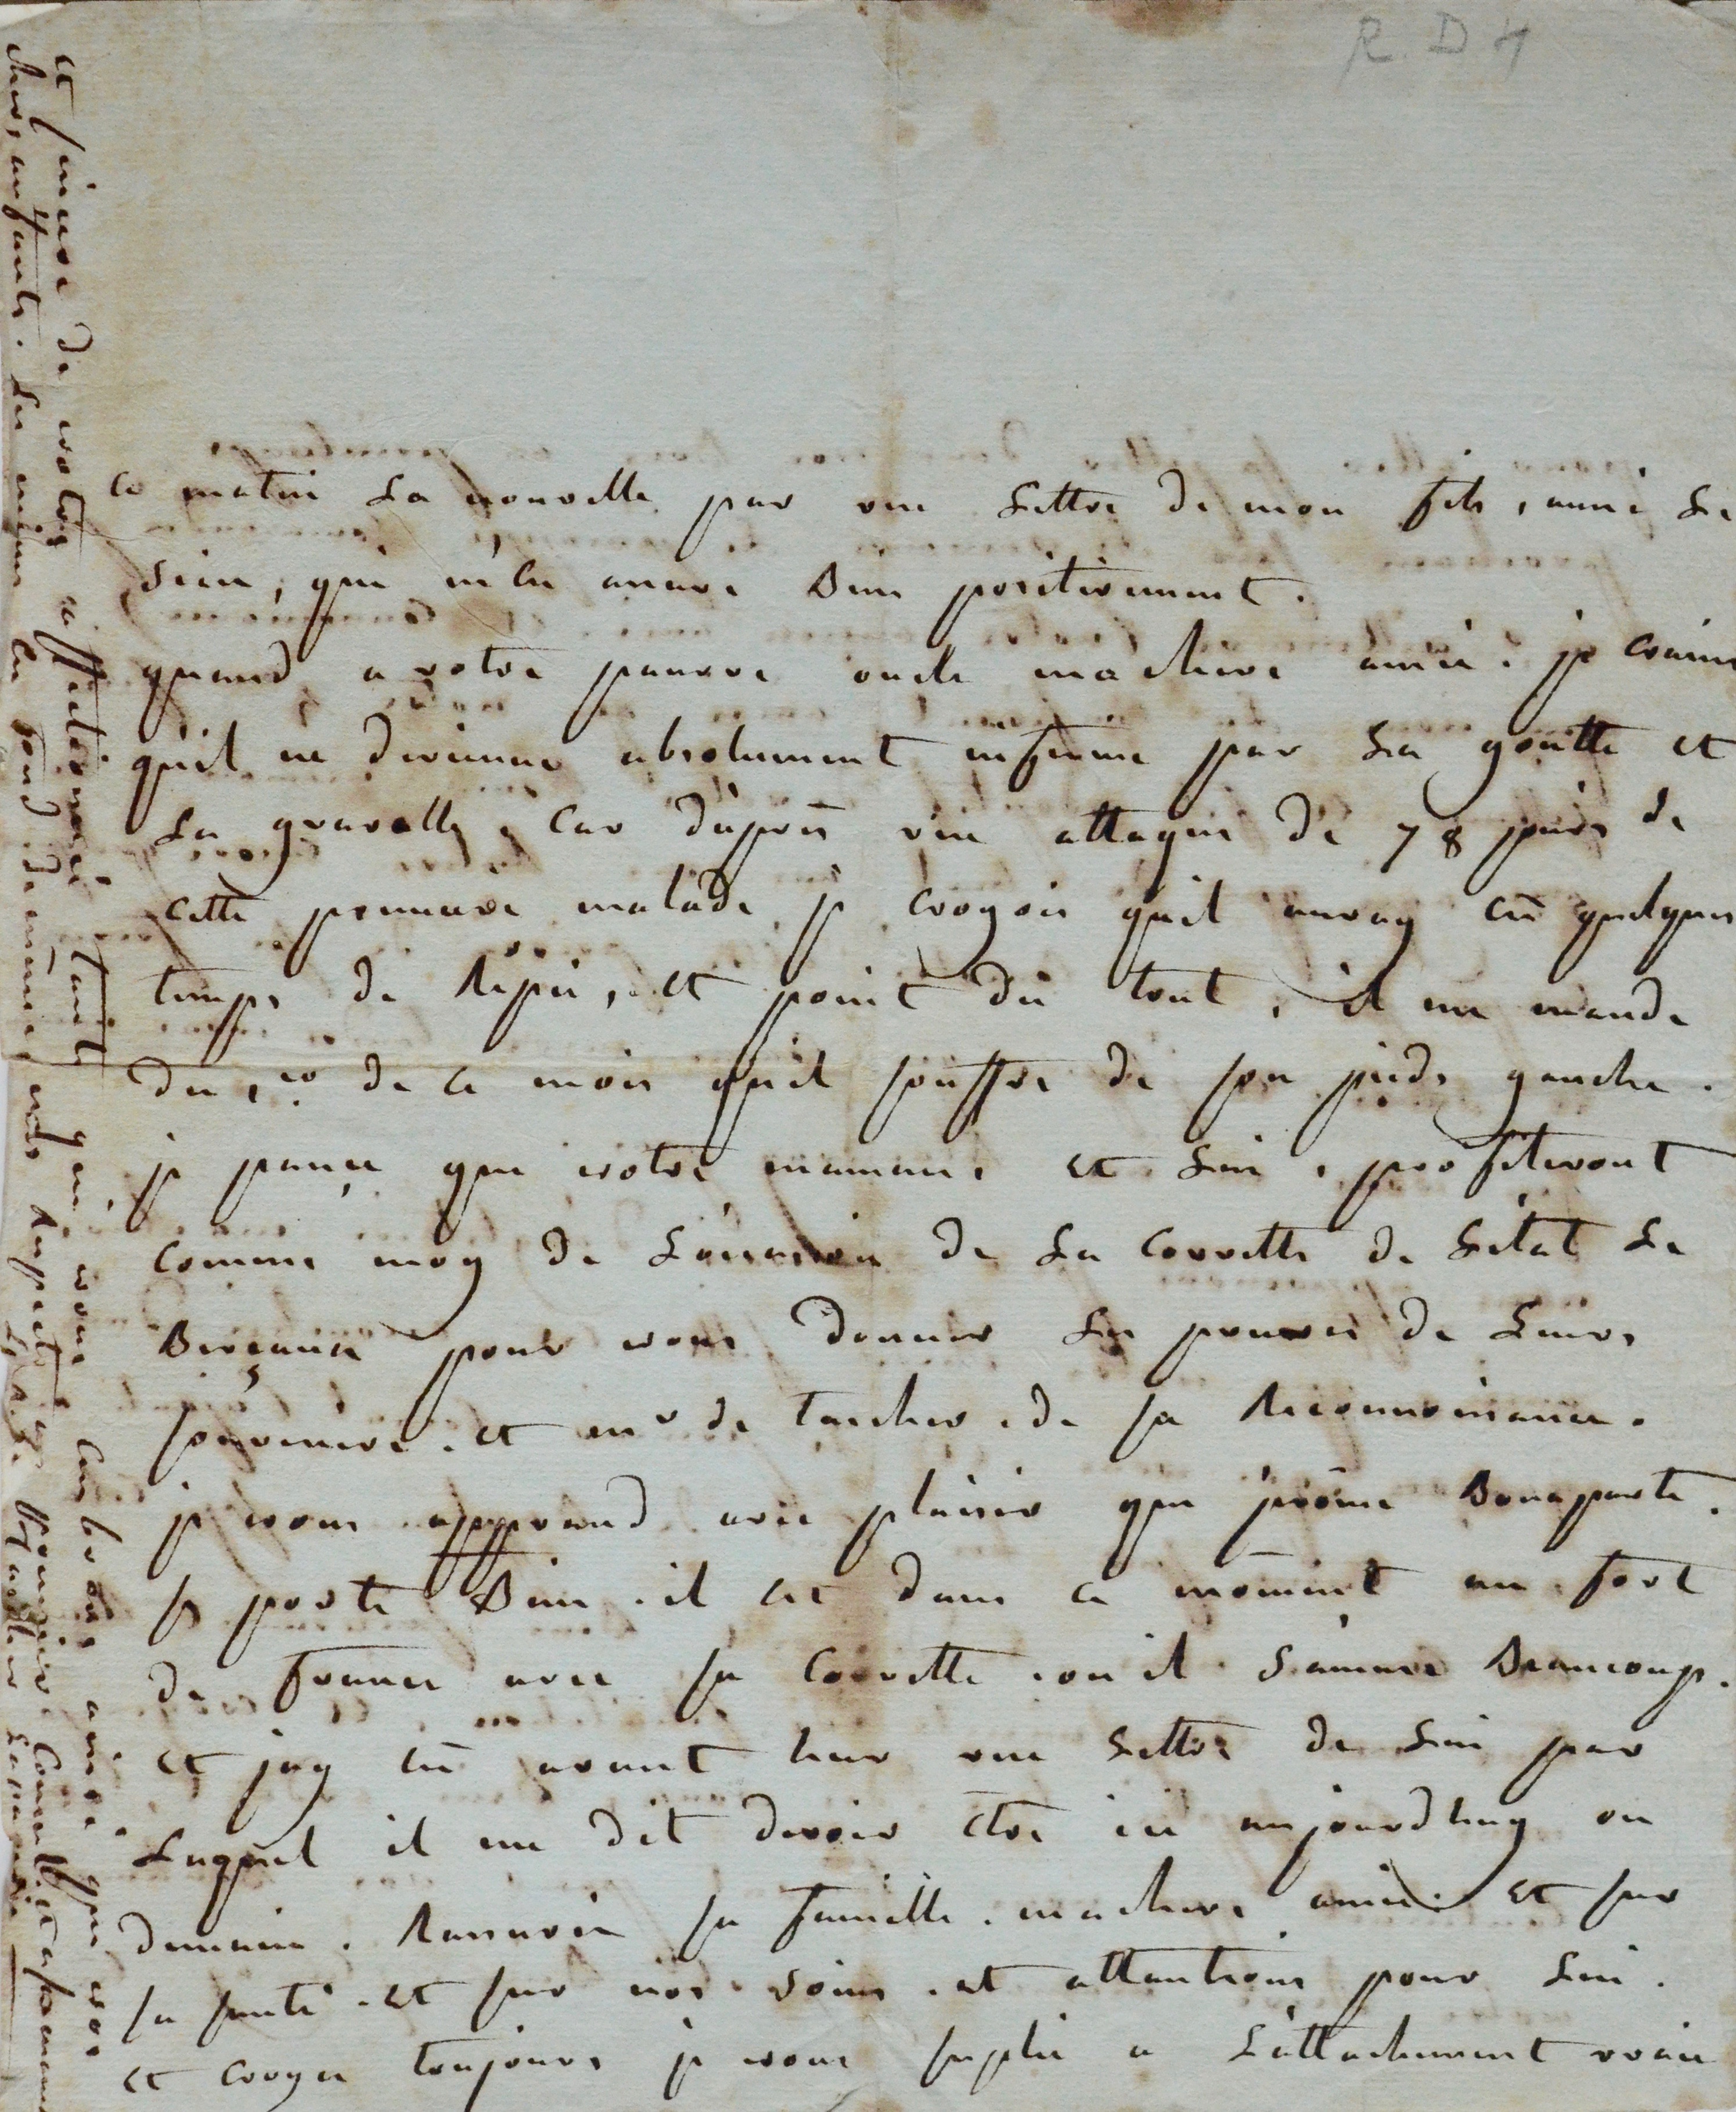 R. D 4
ce matin La nouvelle par une Lettre de mon fils, amie Le
sien, qui m'en assure Bien positivement.
quand a votre pauvre oncle ma chere amie. je crains
qu'il ne devienne absolument infirme par La goutte et
La gravelle, car d'apres une attaque de 78 jours de
cette premiere malade je croyois quil auray eu quelques
temps de Repis, et point du tout, il me mande
du, de ce mois quil souffre de son pieds gauche.
je pance que votre maman, et Lui, profiteront
comme moy de L'occasion de La Corvette de L'état Le
Berçeau pour vous donner des preuves de Leurs
souvenirs. et mr de Tascher. de sa Reconnoissance.
je vous apprend avec plaisir que jerôme Bonaparte.
se porte Bien. il est dans ce moment au fort
de france avec sa Corvette. ou il s'amuse Beaucoup.
et jay eu avant hier une Lettre de Lui par
Laquel il me dit devoir être ici aujourdhuy ou
demain. Rassurée sa famille. ma chere amie. et sur
sa santé. et sur nos soins. et attantions pour Lui.
et croyer toujours je vous suplie a L'attachement vraie
et sincere de votre affectionnée tante qui vous embrasse ainsi que vos
chers anfants. Les miens en font de même, nos Respects au premier Consul et a sa maman